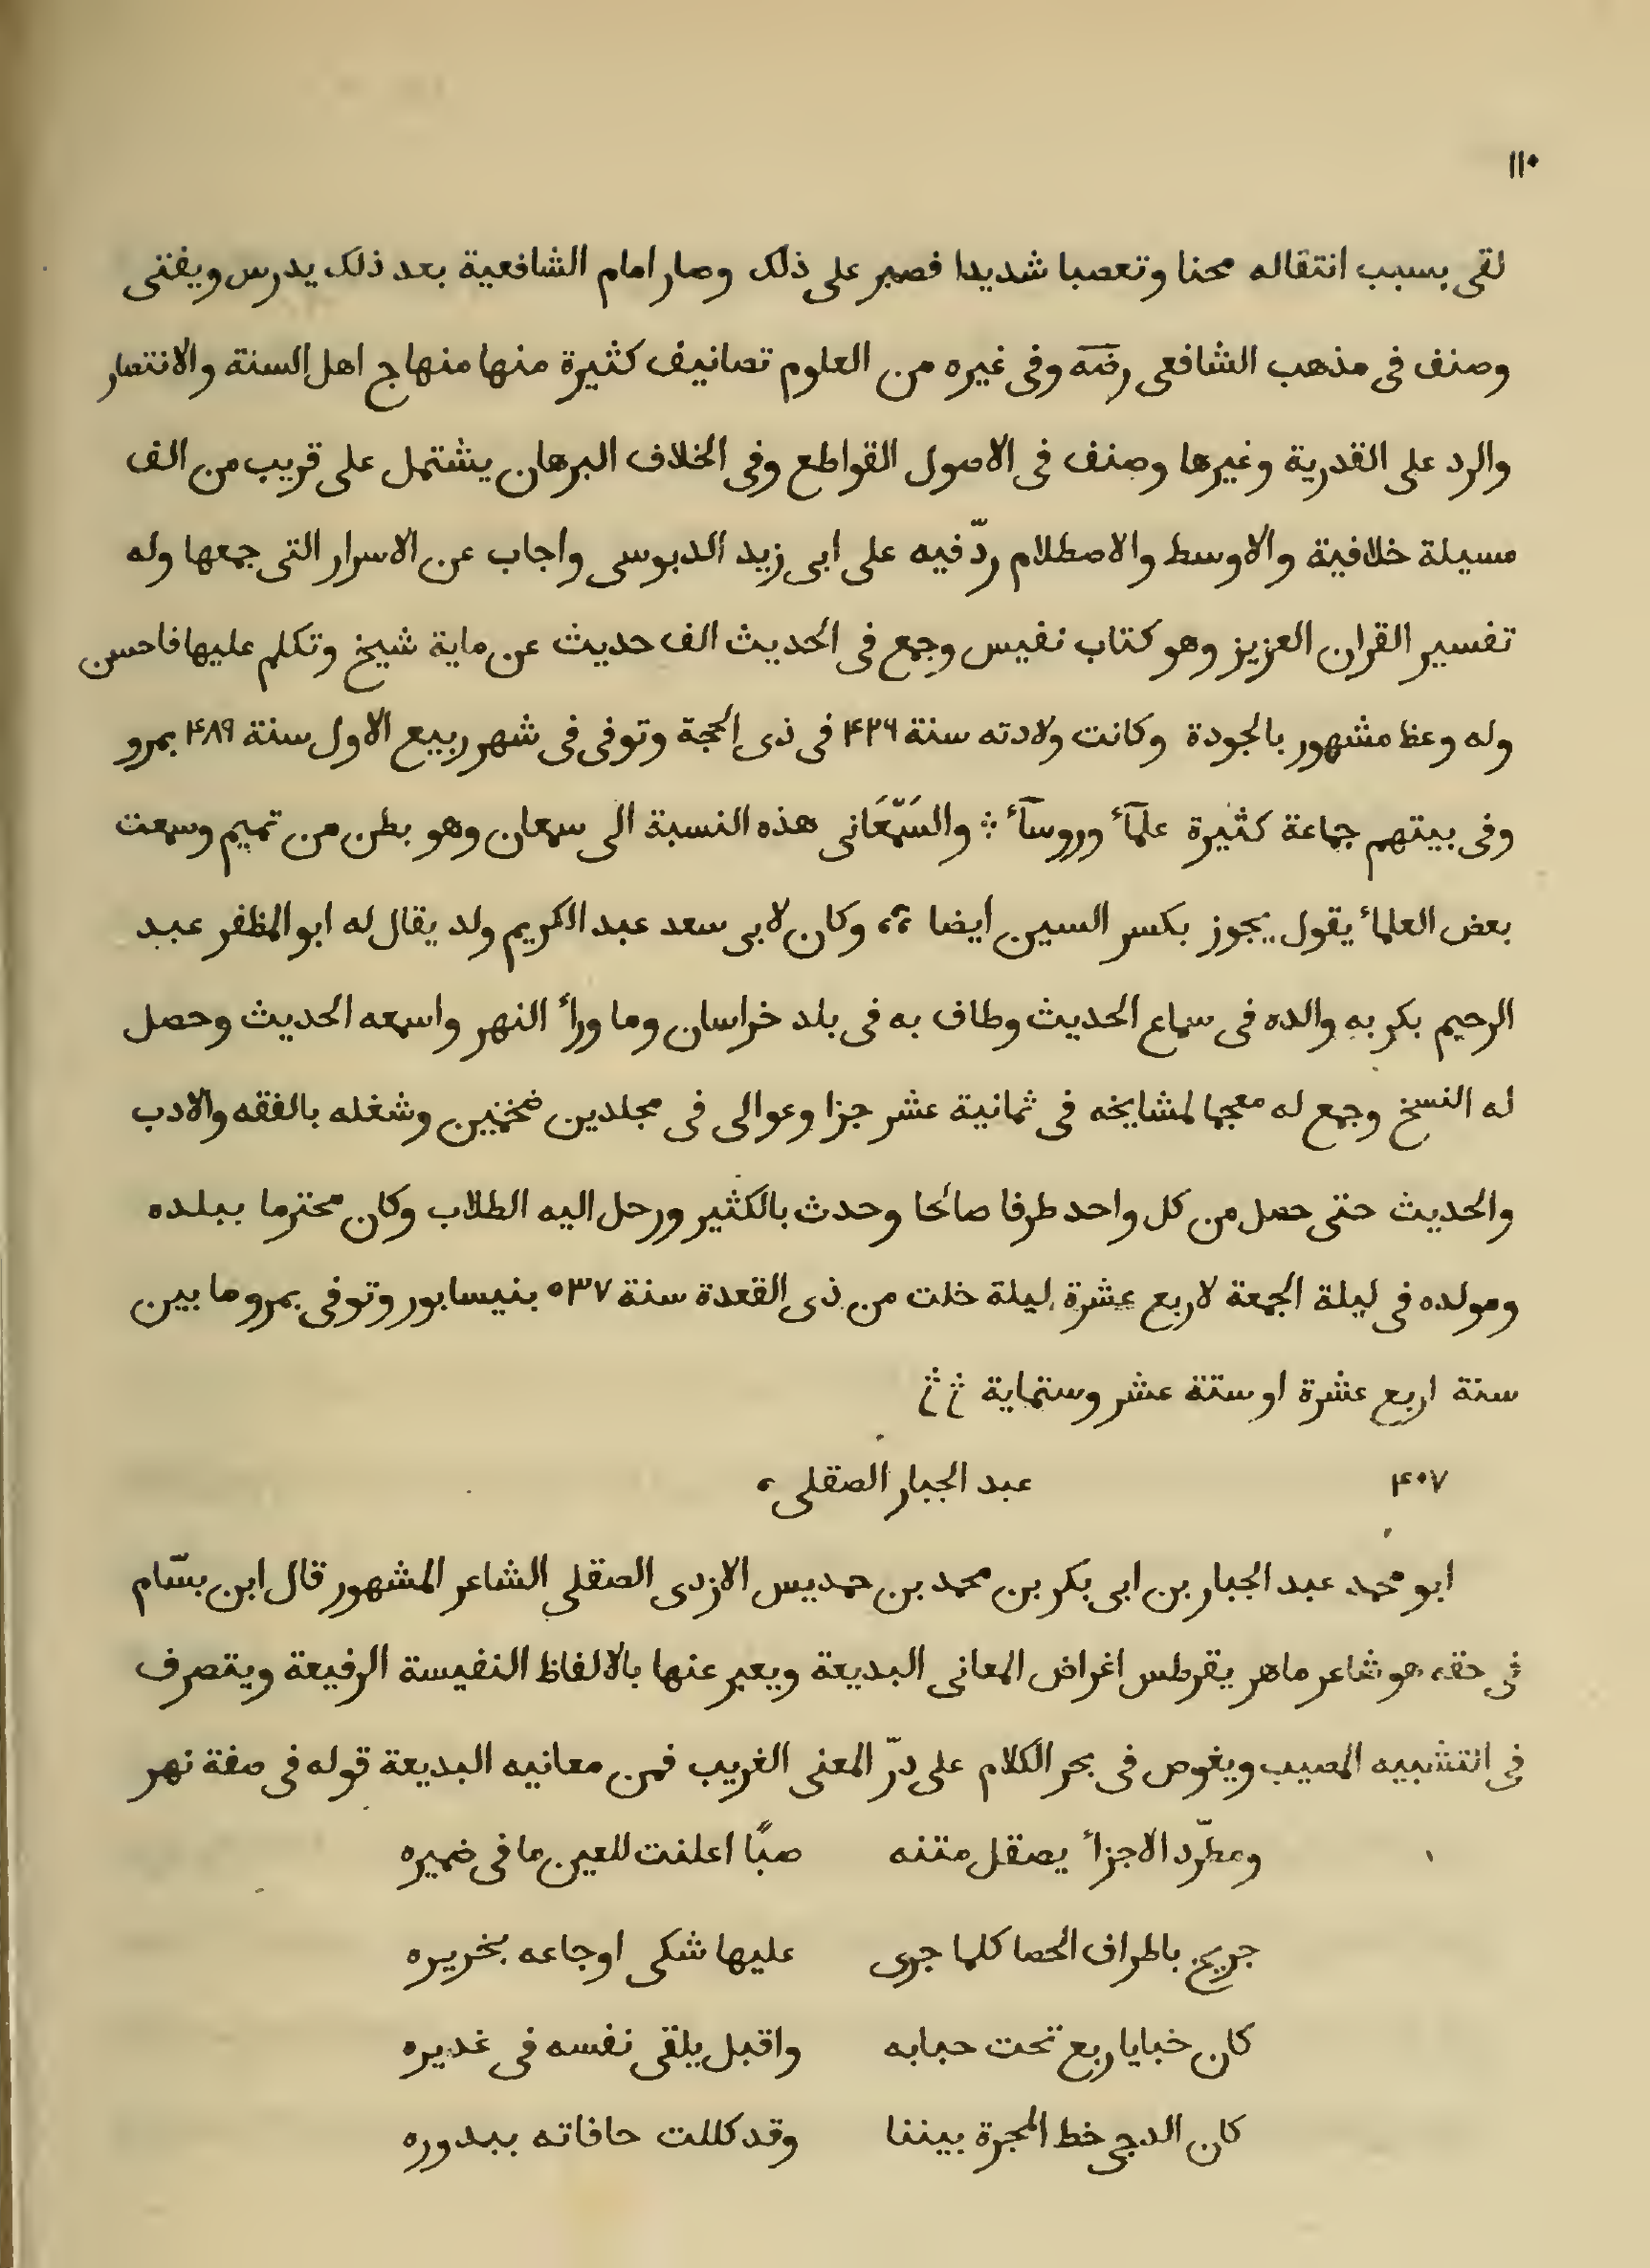 ١١٠
لقى بسبب انتقاله محنا وتعصبا شديدا فصبر على ذلك وصار امام الشافعية بعد ذلك يدرس ويفتى
وصنف فى مذهب الشافعى رضه وفى غيره من العلوم تصانيف كثيرة منها منهاج اهل السنة والانتصار
والرد على القدرية وغيرها وصنف فى الاصول القواطع وفى الخلاف البرهان يشتمل على قريب من الف
مسيلة خلافية والاوسط والاصطلام ردّ فيه على ابى زيد الدبوسى واجاب عن الاسرار التى جمعها وله
تفسير القران العزيز وهو كتاب نفيس وجمع فى الحديث الف حديث عن ماية شيخ وتكلم عليها فاحسن
وله وعظ مشهور بالجودة وكانت ولادته سنة ۴۲۶ فى ذى الحجة وتوفى فى شهر ربيع الاول سنة ۴۸۹ بمرو
وفى بيتهم جماعة كثيرة علمآء وروسآء ؞ والسَّمْعَانى هذه النسبة الى سمعان وهو بطن من تميم وسمعت
بعض العلماء يقول يجوز بكسر السين أيضا وكان لابى سعد عبد الكريم ولد يقال له ابو المظفر عبد
الرحيم بكر به والده فى سماع الحديث وطاف به فى بلد خراسان وما وراء النهر واسمعه الحديث وحصل
له النسخ وجمع له معجما لمشايخه فى ثمانية عشر جزا وعوالى فى مجلدين ضخمين وشغله بالفقه والادب
والحديث حتى حصل من كل واحد طرفا صالحا وحدث بالكثير ورحل اليه الطلاب وكان محترما ببلده
ومولده فى ليلة الجمعة لاربع عشرة ليلة خلت من ذى القعدة سنة ٥٣٧ بنيسابور وتوفى بمرو ما بين
سنة اربع عشرة او ستة عشر وستماية
۴۰۷ عبد الجبار الصقلى
ابو محمد عبد الجبار بن ابى بكر بن محمد بن حمديس الازدى الصقلى الشاعر المشهور قال ابن بسّام
فى حقه هو شاعر ماهر يقرطس اغراض المعانى البديعة ويعبر عنها بالالفاظ النفيسة الرفيعة ويتصرف
فى التشبيه المصيب ويغوص فى بحر الكلام على درّ المعنى الغريب فمن معانيه البديعة قوله فى صفة نهر
ومطّرد الاجزاء يصقل متنه صبًا اعلنت للعين ما فى ضميره
جريح باطراف الحصا كلما جرى عليها شكى اوجاعه بخريره
كان خبايا ربع تحت حبابه واقبل يلقى نفسه فى غديره
كان الدجى خط المجرة بيننا وقد كللت حافاته ببدوره